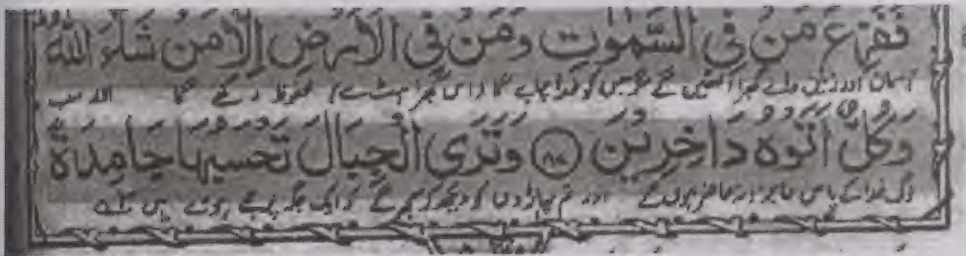 فَفَزِعَ مَنْ فِي السَّمٰوٰتِ وَمَنْ فِي الْاَرْضِ اِلَّا مَنْ شَآءَ اللّٰهُ
آسمان اور زمین والے گھبرا اٹھیں گے مگر جس کو خدا چاہے گا اس گھبراہٹ سے محفوظ رکھے گا اور سب
وَكُلٌّ اَتَوْهُ دَاخِرِيْنَ ﴿۸۷﴾ وَتَرَى الْجِبَالَ تَحْسَبُهَا جَامِدَةً
لوگ خدا کے پاس عاجزانہ حاضر ہوں گے اور تم پہاڑوں کو دیکھ کر سمجھو گے کہ ایک جگہ پر جمے ہوئے ہیں